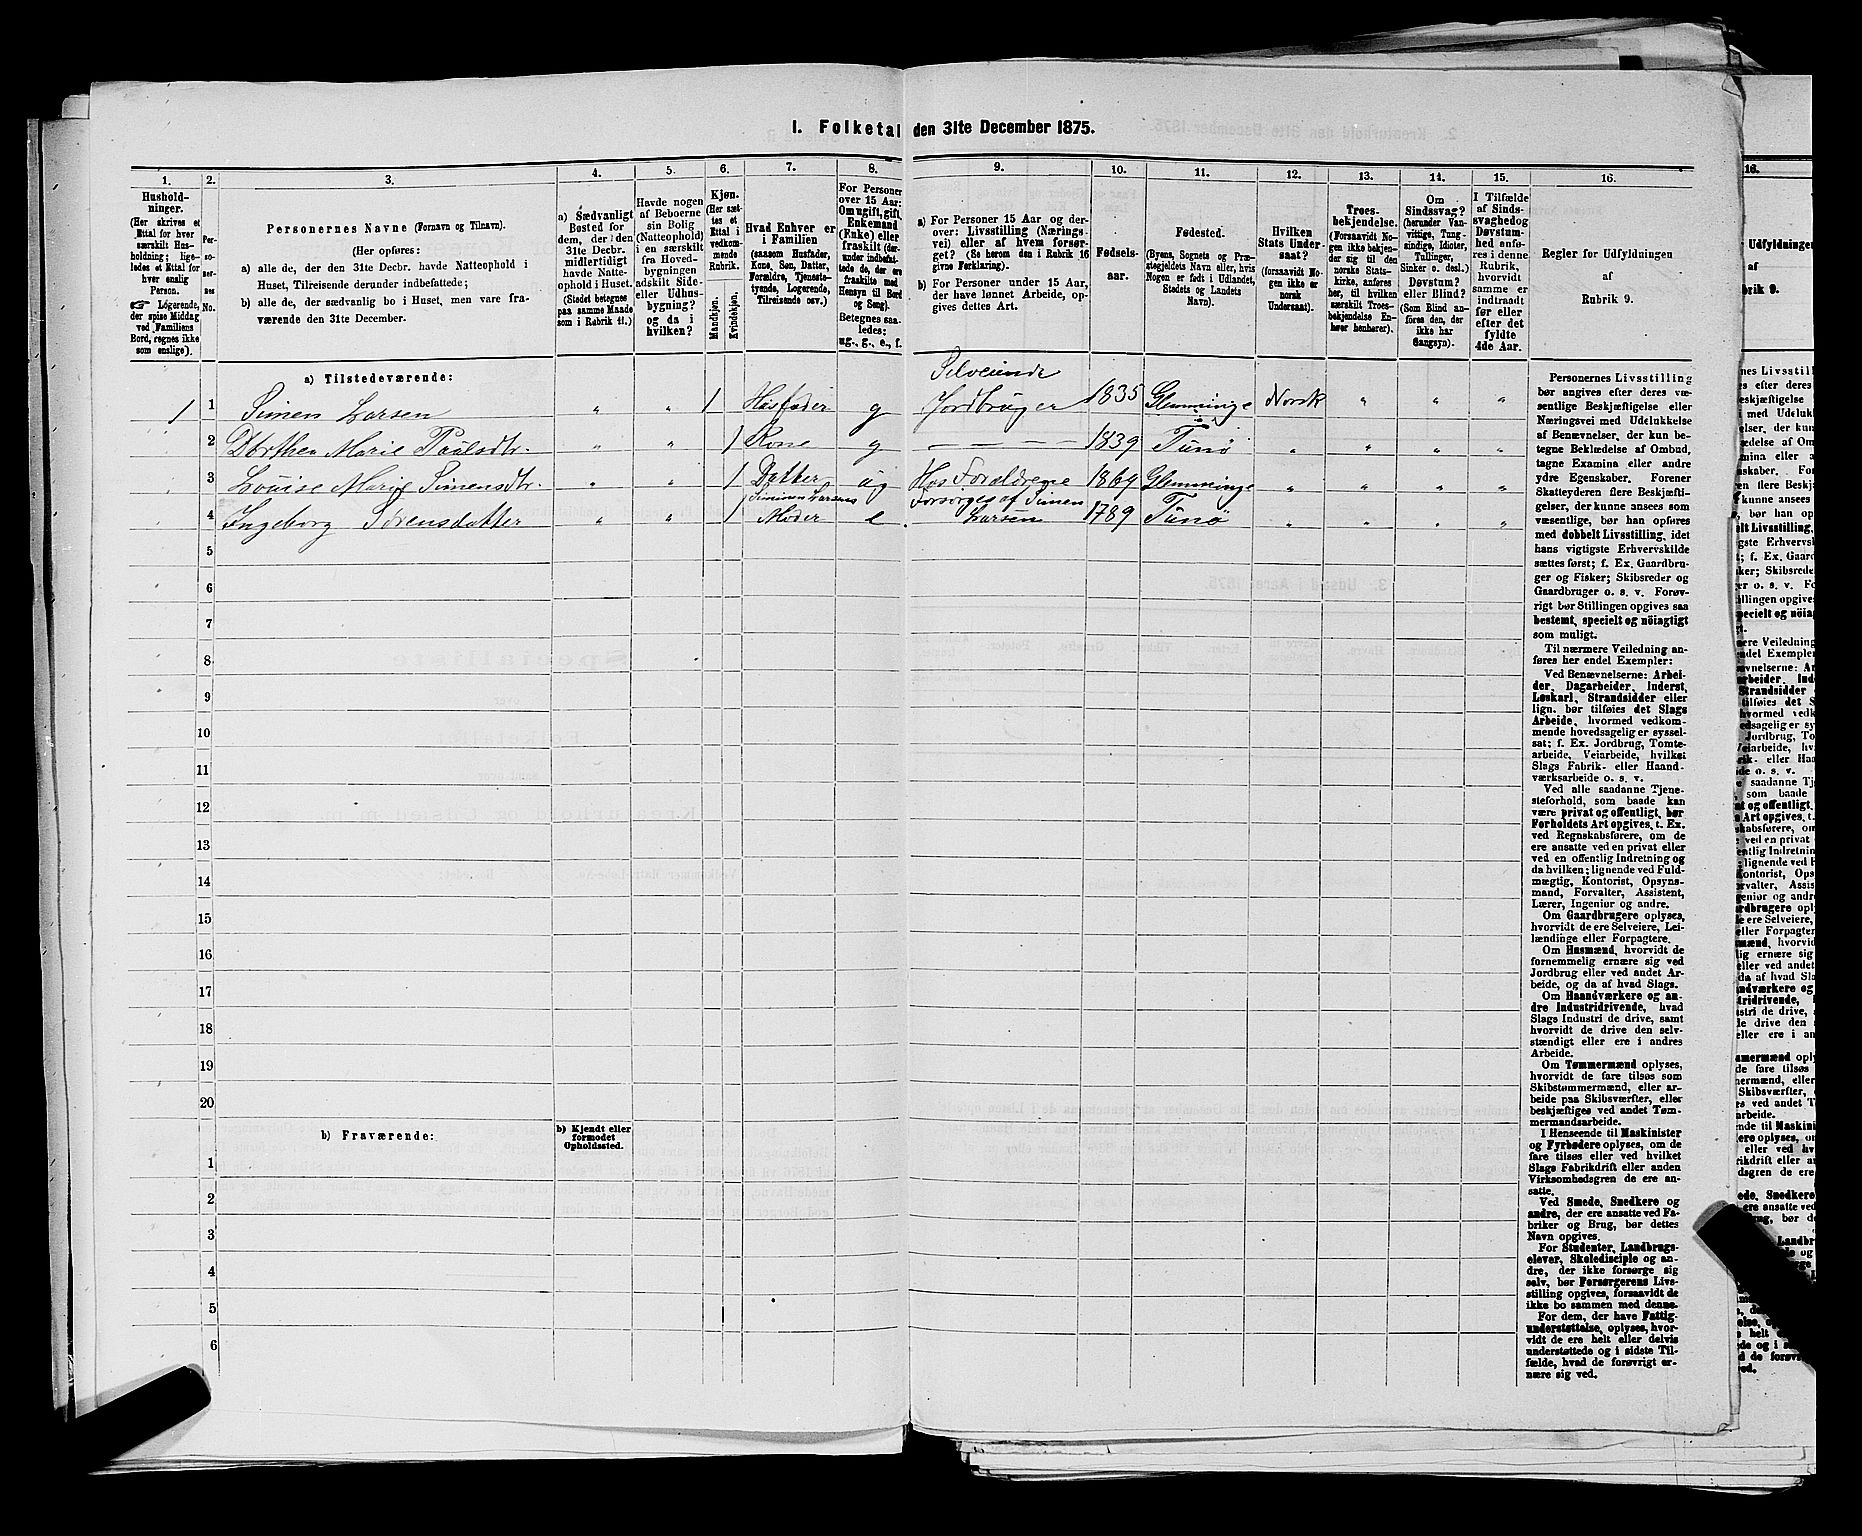 1. Folketal den 31te December 1875.
1. 2. 3. 4. 5. 6. 7. 8. 9. 10. 11. 12. 13. 14. 15. 16.
Hushold-
ninger.
(Her skrives et
Ettal for hver
særskilt Hus-
holdning; lige-
ledes et Ettal for
hver enslig
Person.
☞ Logerende,
der spise Middag
ved Familiens
Bord, regnes ikke
som enslige).
Per-
so-
ner-
nes
No.
Personernes Navne (Fornavn og Tilnavn).
(Her opføres:
a) alle de, der den 31te Decbr. havde Natteophold i
Huset, Tilreisende derunder indbefattede;
b) alle de, der sædvanlig bo i Huset, men vare fra-
værende den 31te December.
a) Sædvanligt
Bosted for
dem, der den
31te Decbr.
midlertidigt
havde Natte-
ophold i Huset.
(Stedet betegnes
paa samme Maade
som i Rubrik 11.)
Havde nogen
af Beboerne
sin Bolig
(Natteophold)
i en særskilt
fra Hoved-
bygningen
adskilt Side-
eller Udhus-
bygning?
og da i
hvilken?
Kjøn.
(Her sæt-
tes et
Ettal i
vedkom-
mende
Rubrik.
Mandkjøn.
Kvindekjøn.
Hvad Enhver er
i Familien
(saasom Husfader,
Kone, Søn, Datter,
Forældre, Tjeneste-
tyende, Logerende,
Tilreisende osv.)
For Personer
over 15 Aar:
Om ugift, gift,
Enkemand
(Enke) eller
fraskilt (der-
under indbefat-
tede de, der ere
fraskilte med
Hensyn til Bord
og Seng).
Betegnes saa-
ledes:
ug., g., e., f.
a) For Personer 15 Aar og der-
over: Livsstilling (Nærings-
vei) eller af hvem forsør-
get? (Se herom den i Rubrik 16
givne Forklaring).
b) For Personer under 15 Aar,
der have lønnet Arbeide, op-
gives dettes Art.
Fødsels-
aar.
Fødested.
(Byens, Sognets og Præ-
stegjeldets Navn eller, hvis
Nogen er født i Udlandet,
Stedets og Landets
Navn).
Hvilken
Stats Under-
saat?
(forsaavidt No-
gen ikke er
norsk
Undersaat).
Troes-
bekjendelse.
(Forsaavidt No-
gen ikke bekjen-
der sig til den
norske Stats-
kirke, anføres
her, til hvilken
særskilt Troes-
bekjendelse En-
hver henhører).
Om
Sindssvag?
(herunder Van-
vittige, Tung-
sindige, Idioter,
Tullinger,
Sinker o. desl.)
Døvstum?
eller Blind?
(Som Blind an-
føres den, der
ikke har
Gangsyn).
I Tilfælde
af Sinds-
svaghed og
Døvstum-
hed anfø-
res i denne
Rubrik,
hvorvidt
samme er
indtraadt
før eller
efter det
fyldte
4de Aar.
Regler for Udfyldningen
af
Rubrik 9.
a) Tilstedeværende:
1 1 Simen Larsen „ „ 1 Husfader g Selveiende Jordbruger 1835 Glemminge Norsk „ „ „
2 Dorthea Marie Paulsdtr. „ „ 1 Kone g — — — — 1839 Tunø „ „ „ „
3 Louise Marie Simensdtr „ „ 1 Datter ug Hos Forældrene 1869 Glemminge „ „ „ „
4 Ingeborg Sørensdatter „ „ 1 Simen Larsens Moder e Forsørges af Simen Larsen 1789 Tunø „ „ „ „
5
6
7
8
9
10
11
12
13
14
15
16
17
18
19
20
b) Fraværende:
b) Kjendt eller
formodet
Opholdssted.
1
2
3
4
5
6
Personernes Livsstilling
bør angives efter deres væ-
sentlige Beskjæftigelse eller
Næringsvei med Udelukkelse
af Benævnelser, der kun be-
tegne Beklædelse af Ombud,
tagne Examina eller andre
ydre Egenskaber. Forener
Skatteyderen flere Beskjæfti-
gelser, der kunne ansees som
væsentlige, bør han opføres
med dobbelt Livsstilling, idet
hans vigtigste Erhvervskilde
sættes først; f. Ex. Gaardbru-
ger og Fisker; Skibsreder og
Gaardbruger o. s. v. Forøv-
rigt bør Stillingen opgives saa
bestemt, specielt og nöiagtigt
som muligt.
Til nærmere Veiledning an-
føres her endel Exempler:
Ved Benævnelserne: Arbei-
der, Dagarbeider, Inderst,
Løskarl, Strandsidder eller
lign. bør tilføies det Slags
Arbeide, hvormed vedkom-
mende hovedsagelig er syssel-
sat; f. Ex. Jordbrug, Tomte-
arbeide, Veiarbeide, hvilket
Slags Fabrik- eller Haand-
værksarbeide o. s. v.
Ved alle saadanne Tjene-
steforhold, som baade kan
være privat og offentligt, bør
Forholdets Art opgives, t. Ex.
ved Regnskabsførere, om de
ere ansatte ved en privat eller
ved en offentlig Indretning og
da hvilken; lignende ved Fuld-
mægtig, Kontorist, Opsyns-
mand, Forvalter, Assistent,
Lærer, Ingeniør og andre.
Om Gaardbrugere oplyses,
hvorvidt de ere Selveiere, Lei-
lændinge eller Forpagtere.
Om Husmænd, hvorvidt de
fornemmelig ernære sig ved
Jordbrug eller ved andet Ar-
beide, og da af hvad Slags.
Om Haandværkere og an-
dre Industridrivende, hvad
Slags Industri de drive, samt
hvorvidt de drive den selv-
stændigt eller ere i andres
Arbeide.
Om Tømmermænd oplyses,
hvorvidt de fare tilsøs som
Skibstømmermænd, eller ar-
beide paa Skibsværfter, eller
beskjæftiges ved andet Tøm-
mermandsarbeide.
I Henseende til Maskinister
og Fyrbødere oplyses, om de
fare tilsøs eller ved hvilket
Slags Fabrikdrift eller anden
Virksomhedsgren de ere an-
satte.
Ved Smede, Snedkere og
andre, der ere ansatte ved Fa-
briker og Brug, bør dettes
Navn opgives.
For Studenter, Landbrugs-
elever, Skoledisciple og an-
dre, der ikke forsørge sig
selv, bør Forsørgerens Livs-
stilling opgives, forsaavidt de
ikke bo sammen med denne.
For dem, der have Fattig-
understøttelse, oplyses, hvor-
vidt de ere helt eller delvis
understøttede og i sidste Til-
fælde, hvad de forøvrigt er-
nære sig ved.